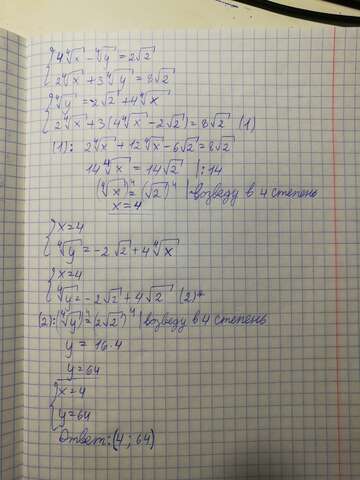 {4⁴√x - ⁴√y = 2√2
{2⁴√x + 3⁴√y = 8√2
{⁴√y = -2√2 + 4⁴√x
{2⁴√x + 3(4⁴√x - 2√2) = 8√2 (1)
(1): 2⁴√x + 12⁴√x - 6√2 = 8√2
14⁴√x = 14√2 |:14
(⁴√x)⁴ = (√2)⁴ | возведу в 4 степень
x = 4
{x = 4
{⁴√y = -2√2 + 4⁴√x
{x = 4
{⁴√y = -2√2 + 4√2 (2)*
(2): (⁴√y)⁴ = (2√2)⁴ | возведу в 4 степень
y = 16·4
y = 64
{x = 4
{y = 64
Ответ: (4; 64)